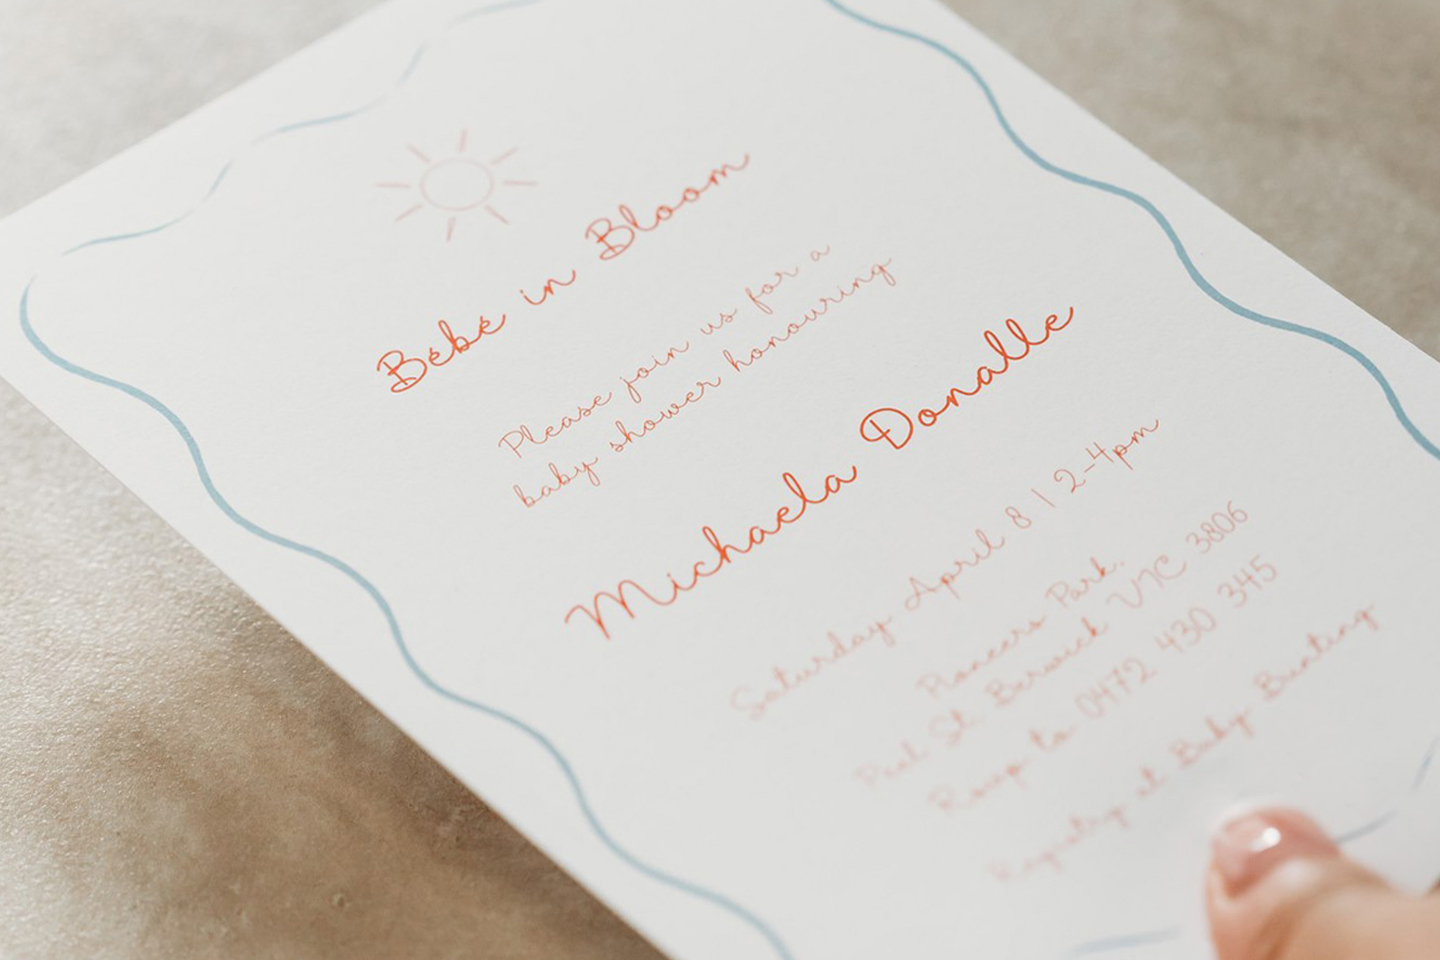 Bébé in Bloom
Please join us for a
baby shower honouring
Michaela Donalle
Saturday April 8 | 2-4pm
Pioneers Park.
Peel St Berwick VIC 3806
Rsvp to 0472 430 345
Registry at Baby Bunting